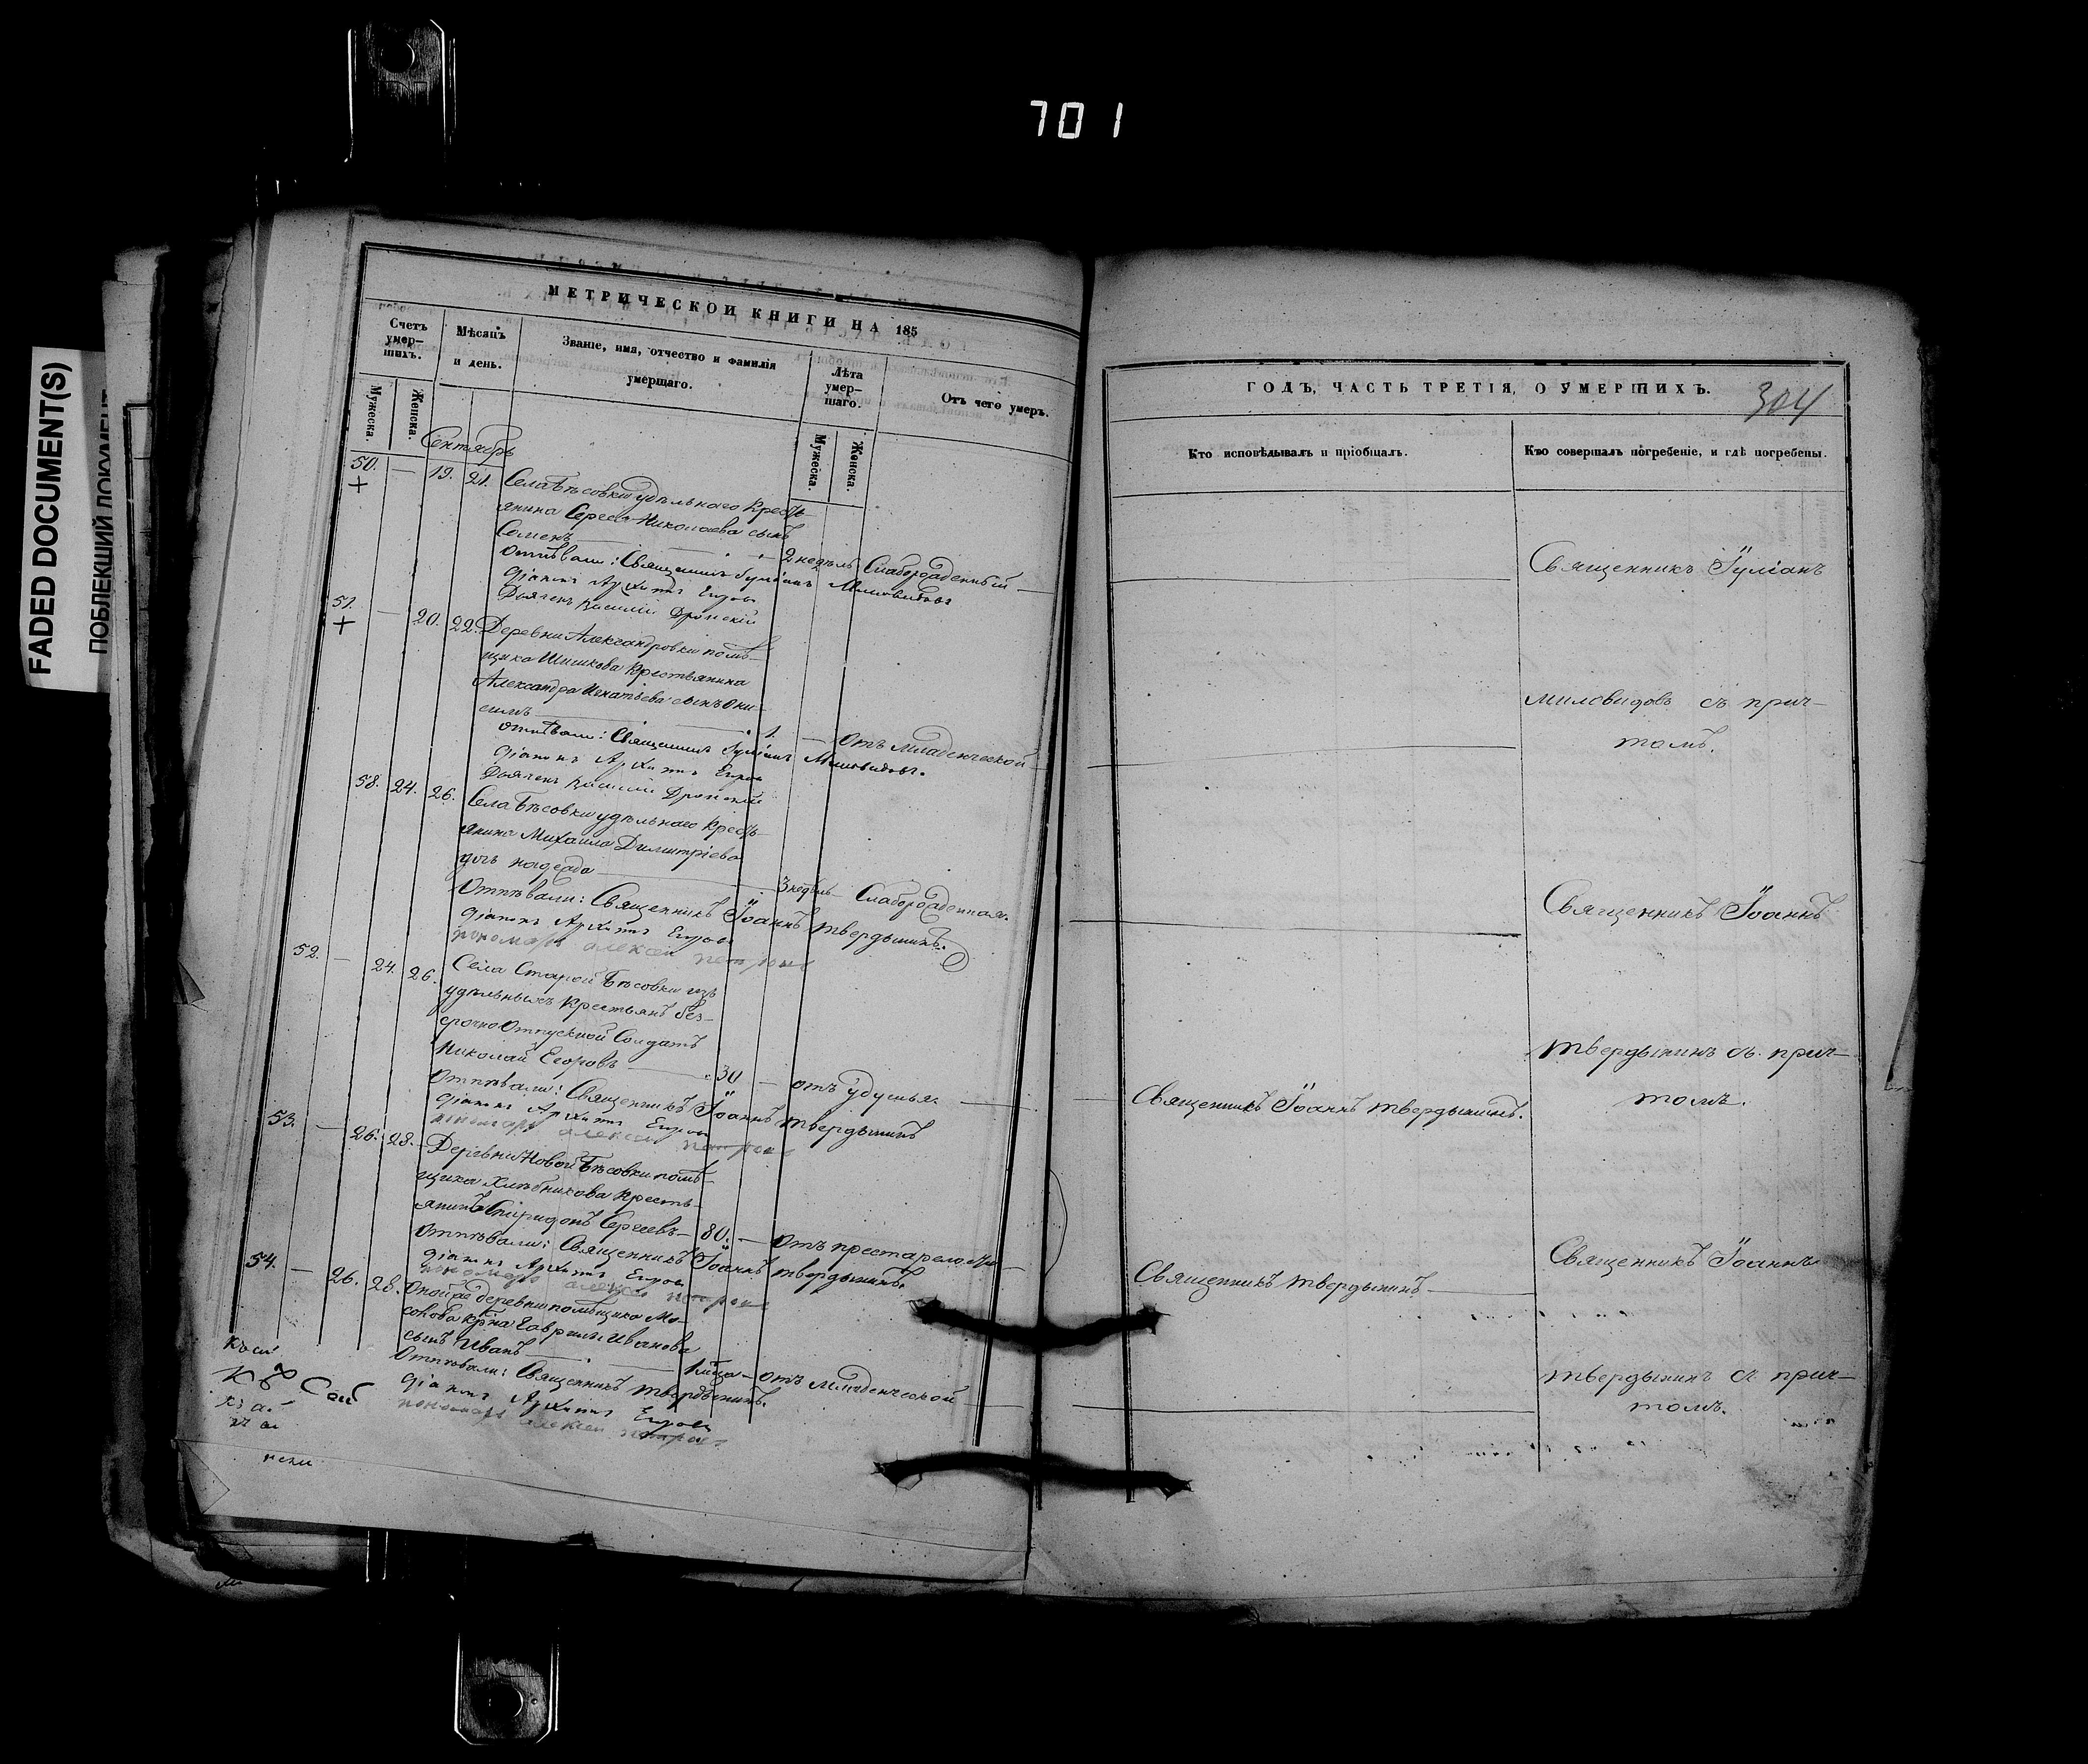 701
FADED DOCUMENT(S)
ПОБЛЕКШИЙ ДОКУМЕНТ
МЕТРИЧЕСКОЙ КНИГИ НА 185
Счетъ умер–шихъ.
Мужеска.
Женска.
Мѣсяцъ и день.
Званіе, имя, отчество и фамилія умершаго.
Лѣта умер–шаго.
Мужеска.
Женска.
Отъ чего умеръ.
Сентябрь
50. — 19. 21. Села Бѣсовки удѣльнаго кресть-
янина Сергея Николаева сынъ
Семенъ — 2 недѣль Слаборожденный
Отпѣвали: Священникъ Іуліанъ Миловидовъ
Діаконъ Архипъ Егоровъ
Дьячекъ Василій
51. — 20. 22. Деревни Александровки помѣ-
щика Шишкова крестьянина
Александра Игнатьева сынъ Они-
симъ — 1. — Отъ младенческой
Отпѣвали: Священникъ Іуліанъ Миловидовъ.
Діаконъ Архипъ Егоровъ
Дьячекъ Василій
58. 24. 26. Села Бѣсовки удѣльнаго кресть-
янина Михаила Димитріева
дочь Надежда — 3 недѣль — Слаборожденная.
Отпѣвали: Священникъ Іоаннъ Твердынинъ.
Діаконъ Архипъ Егоровъ
пономарь Алексей Петровъ
52. — 24. 26. Села Старой Бѣсовки изъ
удѣльныхъ крестьянъ без-
срочно отпускной Солдатъ
Николай Егоровъ — 30 — отъ удушья.
Отпѣвали: Священникъ Іоаннъ Твердынинъ
Діаконъ Архипъ Егоровъ
пономарь Алексей Петровъ
53. — 26. 28. Деревни Новой Бѣсовки помѣ-
щика Хлѣбникова кресть-
янинъ Спиридонъ Сергеевъ — 80. — Отъ престарелости
Отпѣвали: Священникъ Іоаннъ Твердынинъ.
Діаконъ Архипъ Егоровъ
пономарь Алексей Петровъ
54. — 26. 28. Оной же деревни помѣщика Мо-
сонова кр–на Гаврилы Иванова
сынъ Иванъ — 1 м–ца — отъ младенческой
Отпѣвали: Священникъ Твердынинъ.
Діаконъ Архипъ Егоровъ
пономарь Алексей Петровъ
ГОДЪ, ЧАСТЬ ТРЕТІЯ, О УМЕРШИХЪ.
304
Кто исповѣдывалъ и пріобщалъ.
Кто совершалъ погребеніе, и гдѣ погребены.
Священникъ Іуліанъ
Миловидовъ съ прич-
томъ.
Священникъ Іоаннъ
Твердынинъ съ прич-
томъ.
Священникъ Іоаннъ Твердынинъ.
Священникъ Твердынинъ
Священникъ Іоаннъ
Твердынинъ съ прич-
томъ.